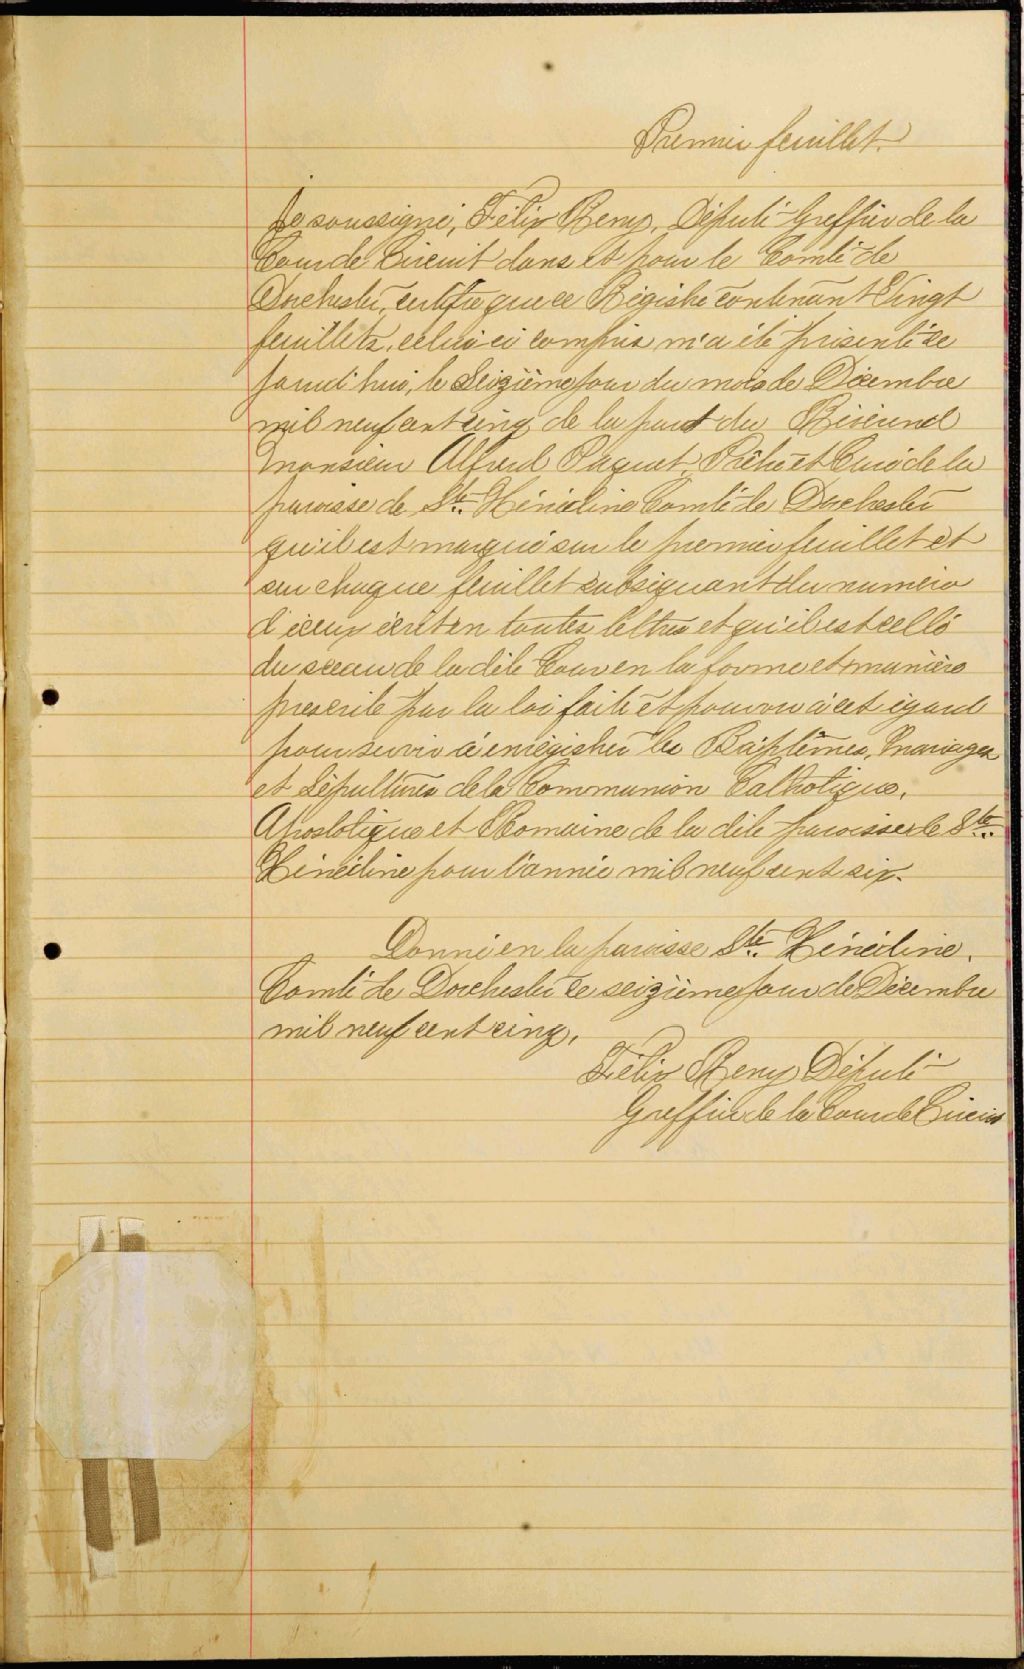 Premier feuillet.
Je soussigné, Félix Remy, Député-Greffier de la
Cour de Circuit dans et pour le Comté de
Dorchester, certifie que ce Régistre contenant Vingt
feuillets, celui-ci compris m'a été présenté ce
jourd'hui, le Seizième jour du mois de Décembre
mil neuf cent cinq, de la part du Révérend
Monsieur Alfred Paquet, Prêtre et Curé de la
paroisse de Ste. Hénédine Comté de Dorchester
qu'il est marqué sur le premier feuillet et
sur chaque feuillet subséquant du numéro
d'iceux écrit en toutes lettres et qu'il est cellé
du sceau de la dite Cour en la forme et manière
prescrite par la loi faite et pourvu à cet égard
pour servir à enrégistrer les Baptêmes, Mariages
et Sépultures de la Communion Catholique,
Apostolique et Romaine de la dite paroisse de Ste.
Hénédine pour l'année mil neuf cent six.
Donné en la paroisse Ste. Hénédine,
Comté de Dorchester ce seizième jour de Décembre
mil neuf cent cinq.
Félix Remy Député
Greffier de la Cour de Circuit